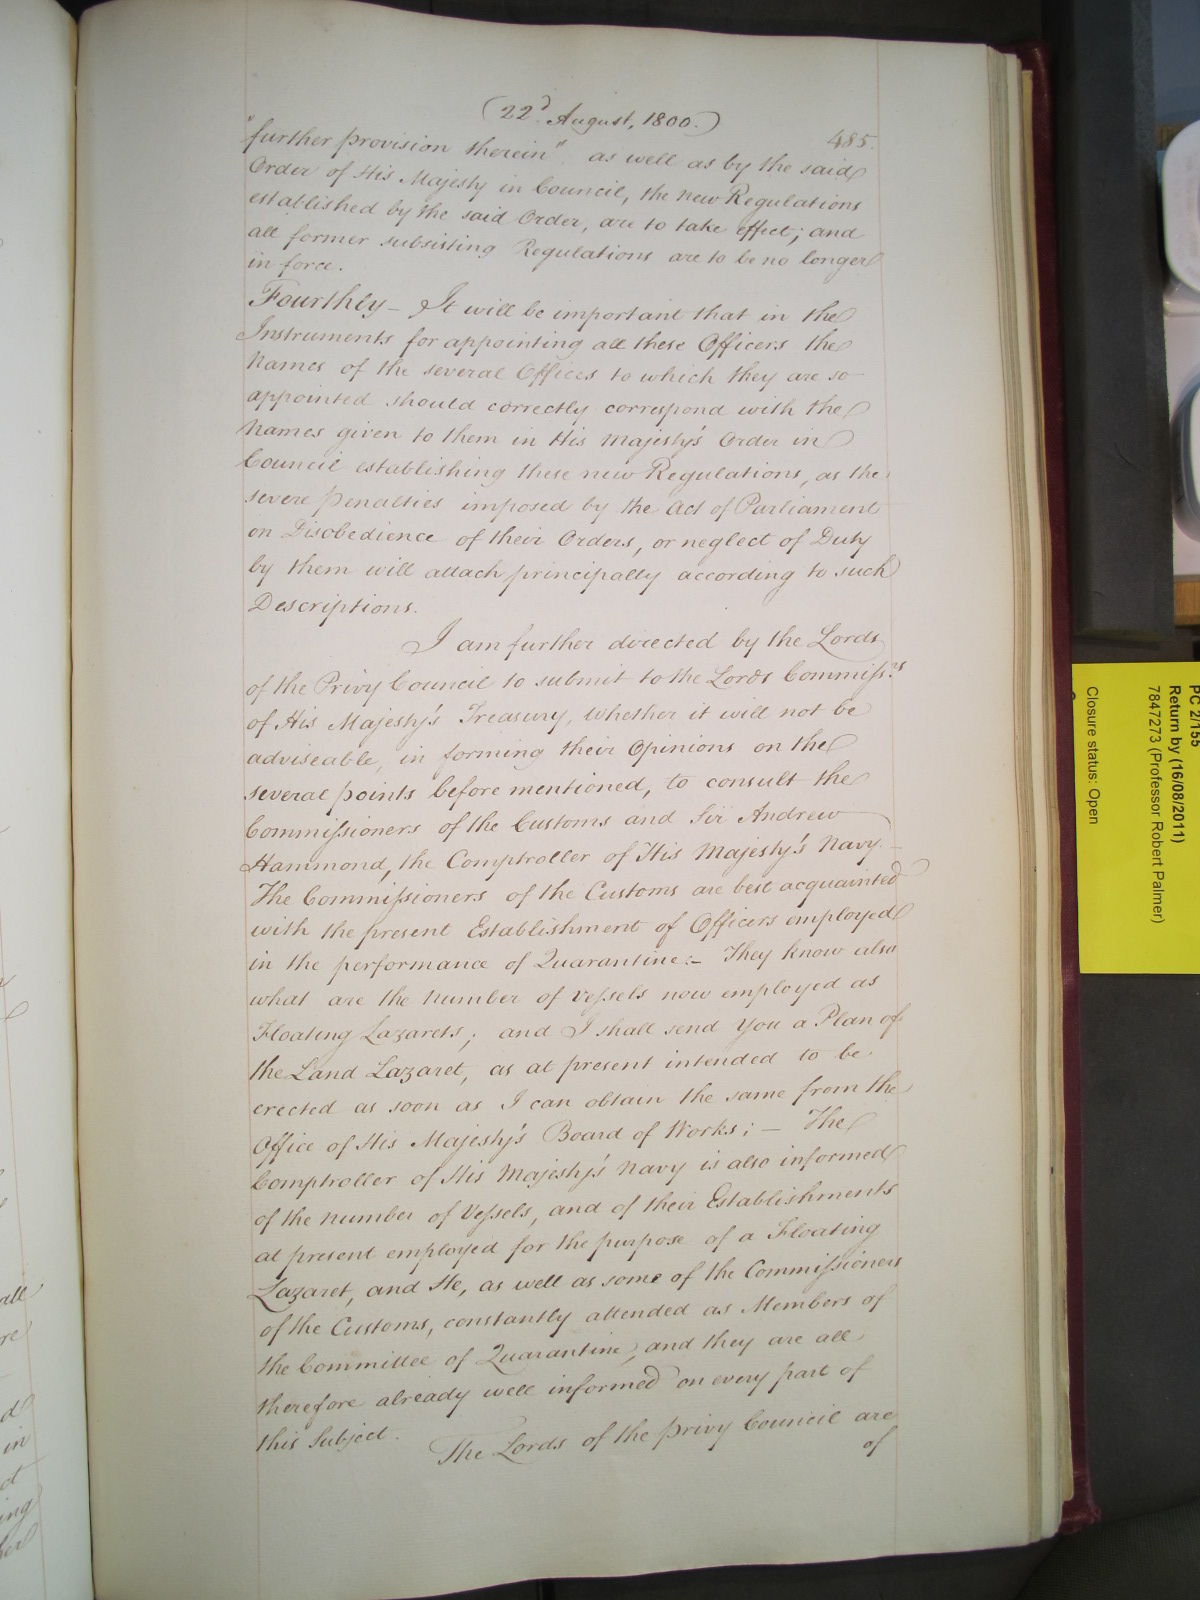 (22d. August, 1800.)
485.
"further provision therein" as well as by the said
Order of His Majesty in Council, the new Regulations
established by the said Order, are to take effect; and
all former subsisting Regulations are to be no longer
in force.
Fourthly – It will be important that in the
Instruments for appointing all these Officers the
Names of the several Offices to which they are so
appointed should correctly correspond with the
Names given to them in His Majesty's Order in
Council establishing these new Regulations, as the
severe penalties imposed by the Act of Parliament
on Disobedience of their Orders, or neglect of Duty
by them will attach principally according to such
Descriptions.
I am further directed by the Lords
of the Privy Council to submit to the Lords Commissrs
of His Majesty's Treasury, Whether it will not be
adviseable, in forming their Opinions on the
several points before mentioned, to consult the
Commissioners of the Customs and Sir Andrew
Hammond, the Comptroller of His Majesty's Navy. –
The Commissioners of the Customs are best acquainted
with the present Establishment of Officers employed
in the performance of Quarantine:– They know also
what are the number of Vessels now employed as
Floating Lazarets; and I shall send You a Plan of
the Land Lazaret, as at present intended to be
erected as soon as I can obtain the same from the
Office of His Majesty's Board of Works; – The
Comptroller of His Majesty's Navy is also informed
of the number of Vessels, and of their Establishments
at present employed for the purpose of a Floating
Lazaret, and He, as well as some of the Commissioners
of the Customs, constantly attended as Members of
the Committee of Quarantine, and they are all
therefore already well informed on every part of
this Subject.
The Lords of the Privy Council are
of
PC 2/155
Return by (16/08/2011)
7847273 (Professor Robert Palmer)
Closure status: Open
all
re
d
in
d
ing
her